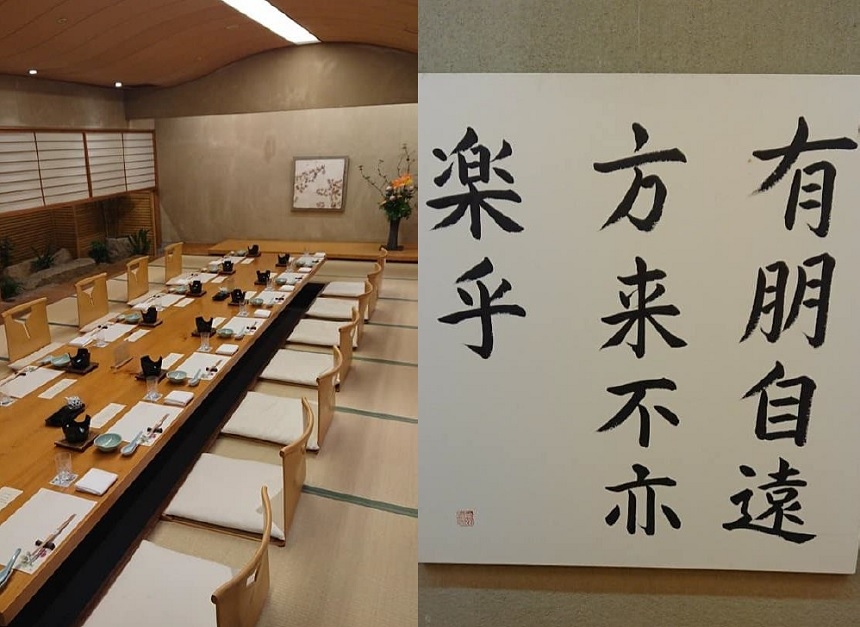 有朋自遠
方来不亦
楽乎